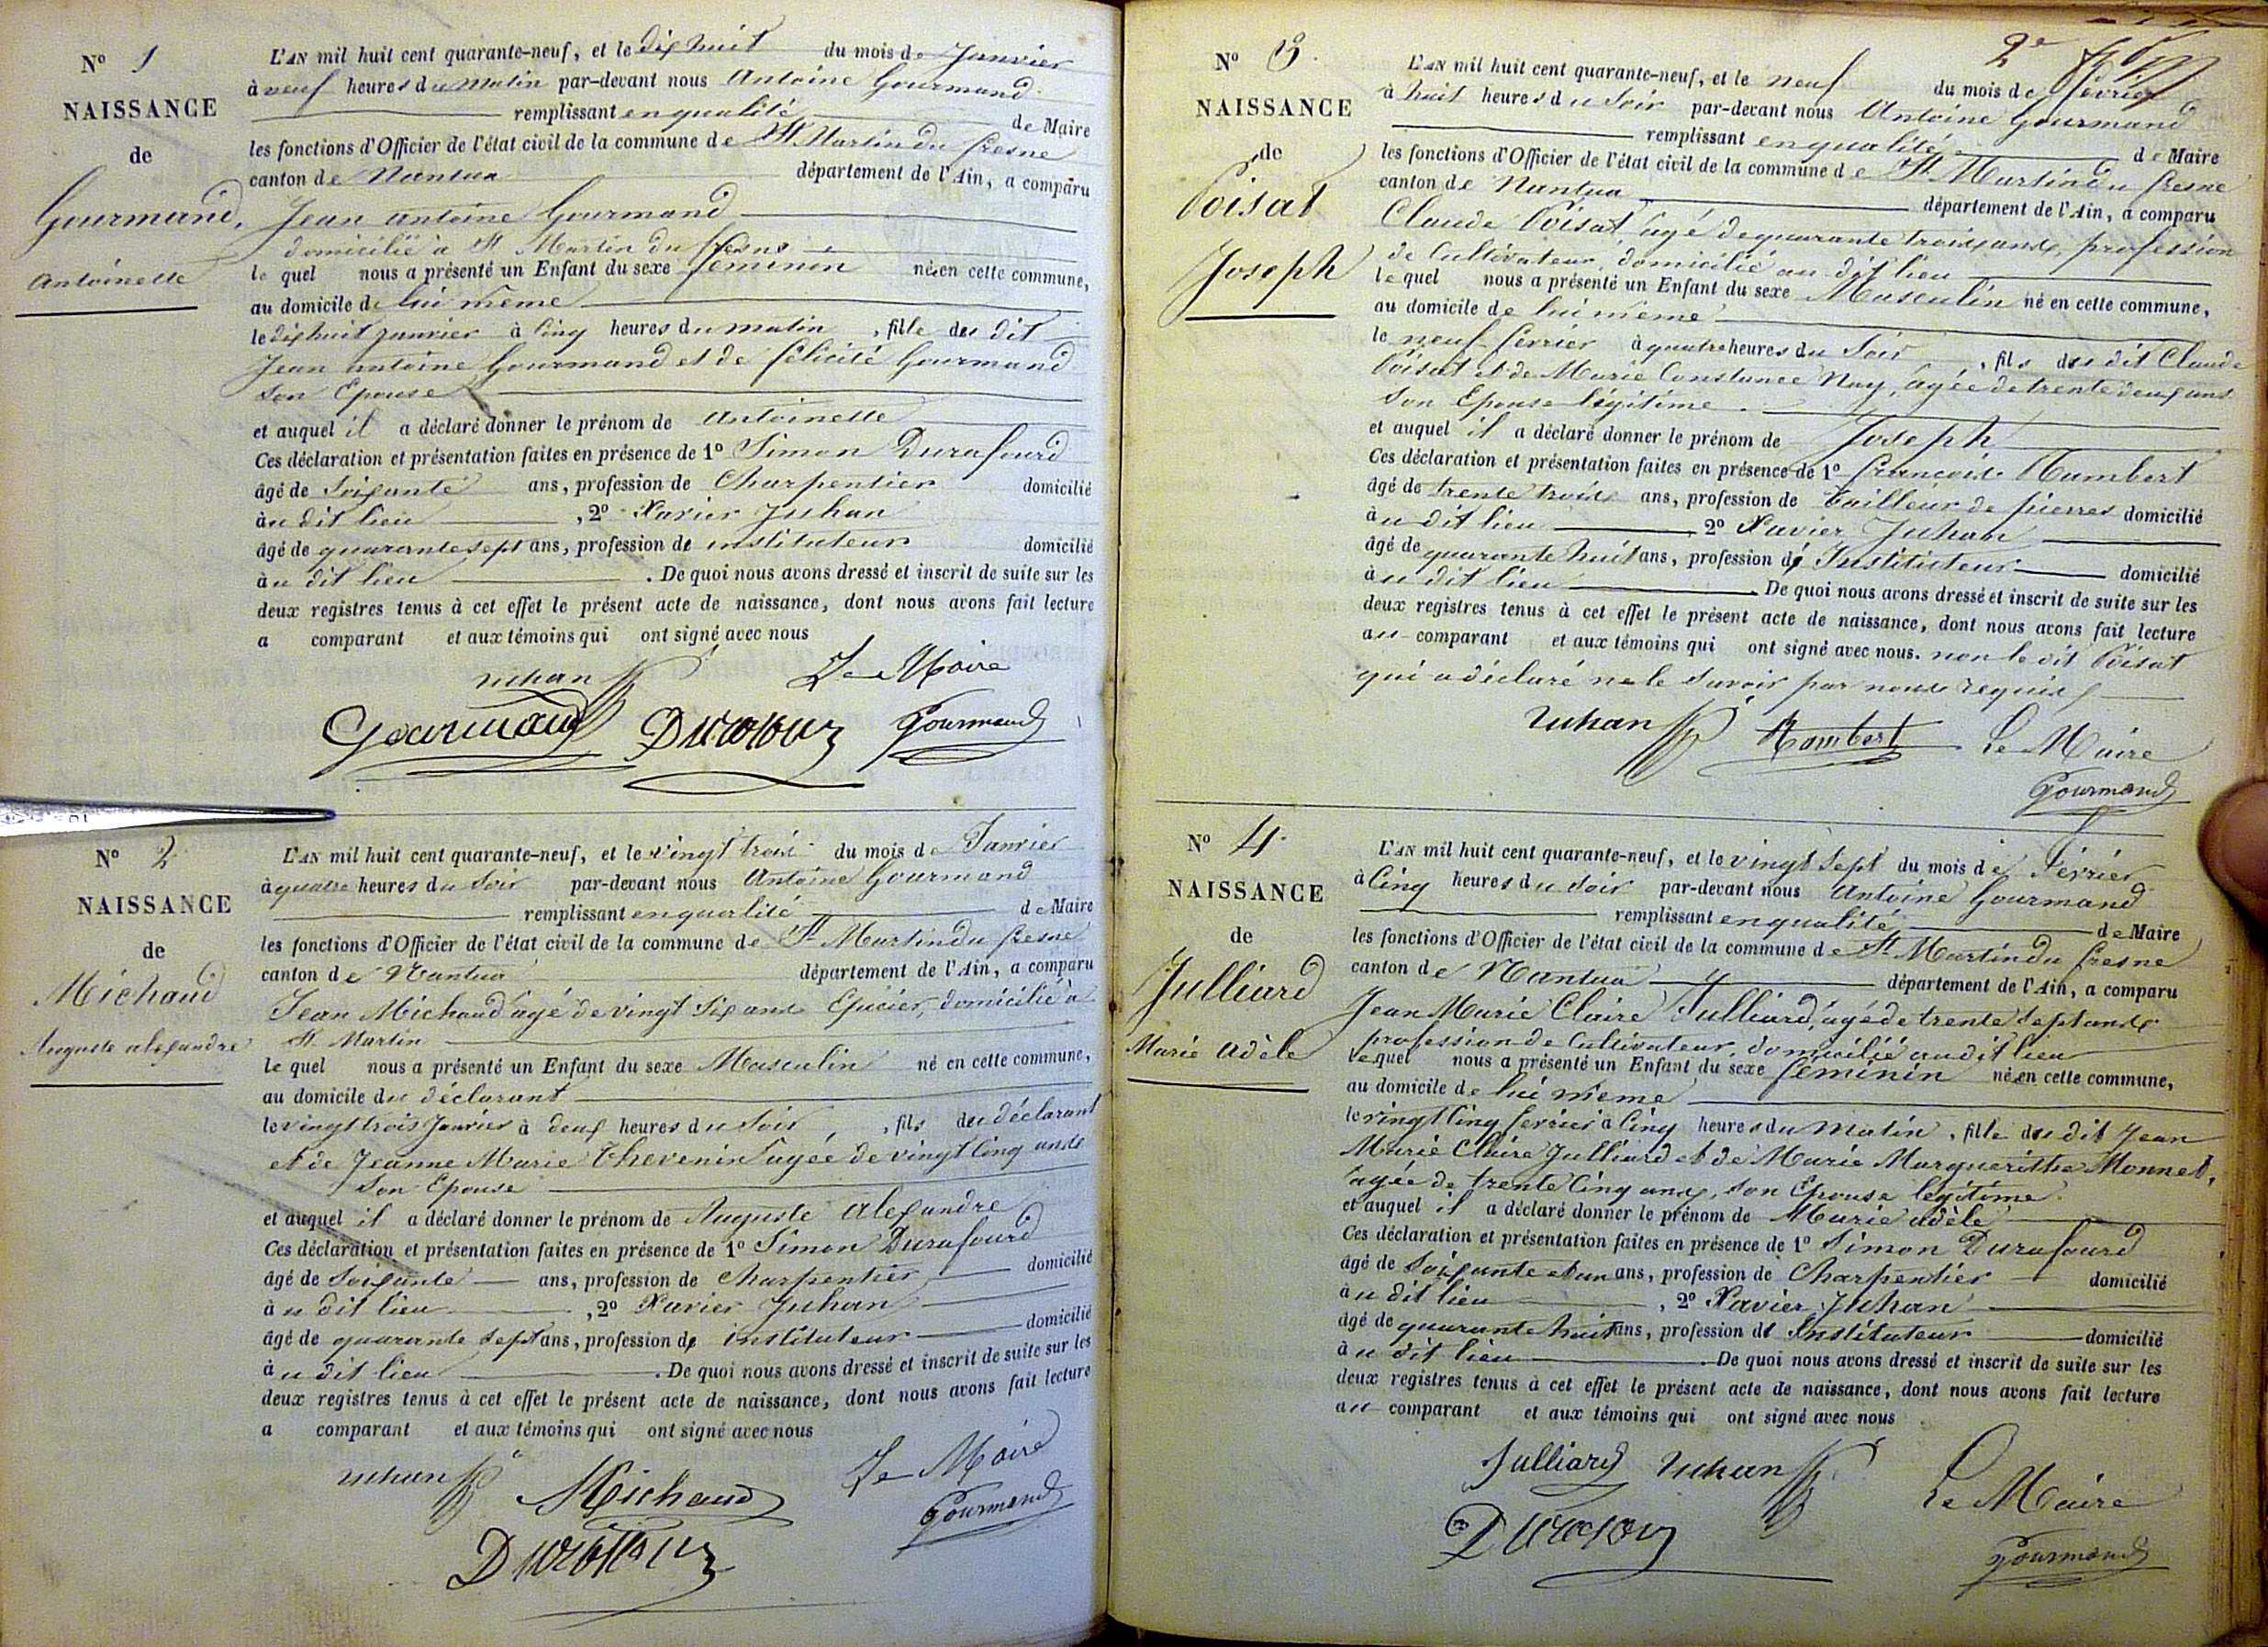 N° 1
NAISSANCE
de
Gourmand,
Antoinette
L'AN mil huit cent quarante-neuf, et le dix huit du mois de Janvier
à neuf heures du matin par-devant nous Antoine Gourmand
remplissant en qualité de Maire
les fonctions d'Officier de l'état civil de la commune de St Martin du fresne
canton de Nantua département de l'Ain, a comparu
Jean antoine Gourmand
domicilié à St Martin du fresne
le quel nous a présenté un Enfant du sexe féminin née en cette commune,
au domicile de lui même
le dix huit janvier à cinq heures du matin, fille du dit
Jean antoine Gourmand et de félicité Gourmand
Son Epouse
et auquel il a déclaré donner le prénom de Antoinette
Ces déclaration et présentation faites en présence de 1° Simon Durafourd
âgé de Soixante ans, profession de Charpentier domicilié
au dit lieu, 2° Xavier Juhan
âgé de quarante sept ans, profession de instituteur domicilié
au dit lieu. De quoi nous avons dressé et inscrit de suite sur les
deux registres tenus à cet effet le présent acte de naissance, dont nous avons fait lecture
a comparant et aux témoins qui ont signé avec nous
Juhan Le Maire
Gourmand Durafour Gourmand
N° 2
NAISSANCE
de
Michaud
Auguste alexandre
L'AN mil huit cent quarante-neuf, et le vingt trois du mois de Janvier
à quatre heures du Soir par-devant nous Antoine Gourmand
remplissant en qualité de Maire
les fonctions d'Officier de l'état civil de la commune de St Martin du fresne
canton de Nantua département de l'Ain, a comparu
Jean Michaud agé de vingt Six ans Epicier, domicilié à
St Martin
le quel nous a présenté un Enfant du sexe Masculin né en cette commune,
au domicile du déclarant
le vingt trois Janvier à deux heures du Soir, fils du déclarant
et de Jeanne Marie Thevenin agée de vingt Cinq ans
Son Epouse
et auquel il a déclaré donner le prénom de Auguste alexandre
Ces déclaration et présentation faites en présence de 1° Simon Durafourd
âgé de Soixante ans, profession de Charpentier domicilié
au dit lieu, 2° Xavier Juhan
âgé de quarante Sept ans, profession de instituteur domicilié
au dit lieu. De quoi nous avons dressé et inscrit de suite sur les
deux registres tenus à cet effet le présent acte de naissance, dont nous avons fait lecture
a comparant et aux témoins qui ont signé avec nous
Juhan Michaud Le Maire
Durafour Gourmand
2e
N° 3.
NAISSANCE
de
Poisat
Joseph
L'AN mil huit cent quarante-neuf, et le neuf du mois de février
à huit heures du Soir par-devant nous Antoine Gourmand
remplissant en qualité de Maire
les fonctions d'Officier de l'état civil de la commune de St Martin du fresne
canton de Nantua département de l'Ain, a comparu
Claude Poisat agé de quarante trois ans, profession
de Cultivateur, domicilié au dit lieu
le quel nous a présenté un Enfant du sexe Masculin né en cette commune,
au domicile de lui même
le neuf février à quatre heures du Soir, fils du dit Claude
Poisat et de Marie Constance Nay, agée de trente deux ans
Son Epouse légitime.
et auquel il a déclaré donner le prénom de Joseph
Ces déclaration et présentation faites en présence de 1° francois Rambert
âgé de trente trois ans, profession de tailleur de pierres domicilié
au dit lieu 2° Xavier Juhan
âgé de quarante huit ans, profession de Instituteur domicilié
au dit lieu. De quoi nous avons dressé et inscrit de suite sur les
deux registres tenus à cet effet le présent acte de naissance, dont nous avons fait lecture
au comparant et aux témoins qui ont signé avec nous. non le dit Poisat
qui a déclaré ne le Savoir par nous requis
Juhan Rambert Le Maire
Gourmand
N° 4.
NAISSANCE
de
Julliard
Marie Adèle
L'AN mil huit cent quarante-neuf, et le vingt Sept du mois de Février
à Cinq heures du Soir par-devant nous Antoine Gourmand
remplissant en qualité de Maire
les fonctions d'Officier de l'état civil de la commune de St Martin du fresne
canton de Nantua département de l'Ain, a comparu
Jean Marie Claire Julliard, agé de trente Sept ans
profession de Cultivateur, domicilié au dit lieu
lequel nous a présenté un Enfant du sexe féminin née en cette commune,
au domicile de lui même
le vingt Cinq février à Cinq heures du Matin, fille du dit Jean
Marie Claire Julliard et de Marie Marguerithe Monnet,
agée de trente Cinq ans, Son Epouse légitime.
et auquel il a déclaré donner le prénom de Marie adèle
Ces déclaration et présentation faites en présence de 1° Simon Durafourd
âgé de Soixante et un ans, profession de Charpentier domicilié
au dit lieu, 2° Xavier Juhan
âgé de quarante huit ans, profession de Instituteur domicilié
au dit lieu. De quoi nous avons dressé et inscrit de suite sur les
deux registres tenus à cet effet le présent acte de naissance, dont nous avons fait lecture
au comparant et aux témoins qui ont signé avec nous
Julliard Juhan Le Maire
Durafour Gourmand